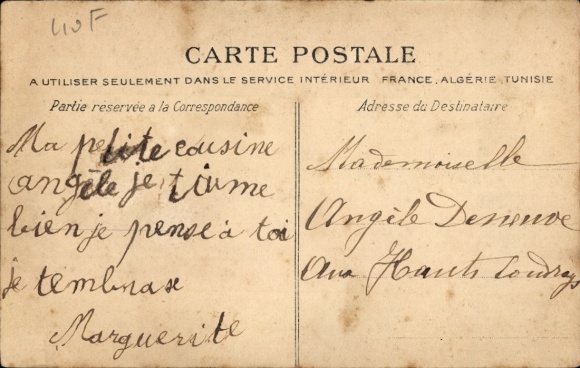 40 F
CARTE POSTALE
A UTILISER SEULEMENT DANS LE SERVICE INTÉRIEUR FRANCE, ALGÉRIE, TUNISIE
Partie réservée à la Correspondance
Ma petite cousine
angèle je t'aime
bien je pense à toi
je tembrase
Marguerite
Adresse du Destinataire
Mademoiselle
Angèle
Aux Hauts